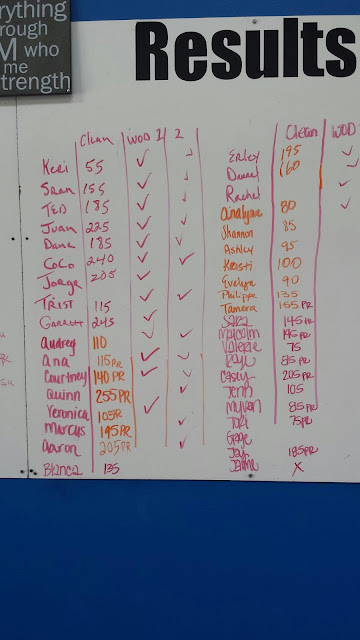 rything
rough
M who
me
trength
Results
Clean WOD 1 2
Keri 55 ✓ ✓
Sean 155 ✓ ✓
TED 185 ✓ ✓
Juan 225 ✓ ✓
Dana 185 ✓ ✓
CoCo 240 ✓ ✓
Jorge 205 ✓
TRIST 115 ✓ ✓
Garrett 245 ✓ ✓
Audrey 110 ✓
Ana 115 PR ✓ ✓
Courtney 140 PR ✓ ✓
Quinn 255 PR ✓
Veronica 105 R ✓
Marcus 195 PR ✓
Aaron 205 PR ✓
Blanca 135
Clean WOD
195 ✓
Daniel 160 ✓
Rachel ✓
Analynne 80 ✓
Shannon 85
Ashley 95
Kristi 100
Evelyn 90
Philippe 135
Tamera 155 PR
Sara 145 PR
Malcolm 195 PR
Valerie 75
85 PR
Casey 205 PR
Jenn 105
85 PR
Tori 75 PR
Gage
Jay 185 PR
X